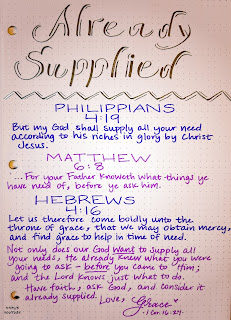 Already
Supplied
PHILIPPIANS
4:19
But my God shall supply all your need
according to his riches in glory by Christ
Jesus.
MATTHEW
6:8
'...For your Father Knoweth what things ye
have need of, before ye ask him.
HEBREWS
4:16
Let us therefore come boldly unto the
throne of grace, that we may obtain mercy,
and find grace to help in time of need.
Not only does our God want to supply all
your needs, He already knew what you were
going to ask - before you came to Him;
and the Lord knows just what to do.
Have faith, ask God, and consider it
already supplied.
Love, Grace